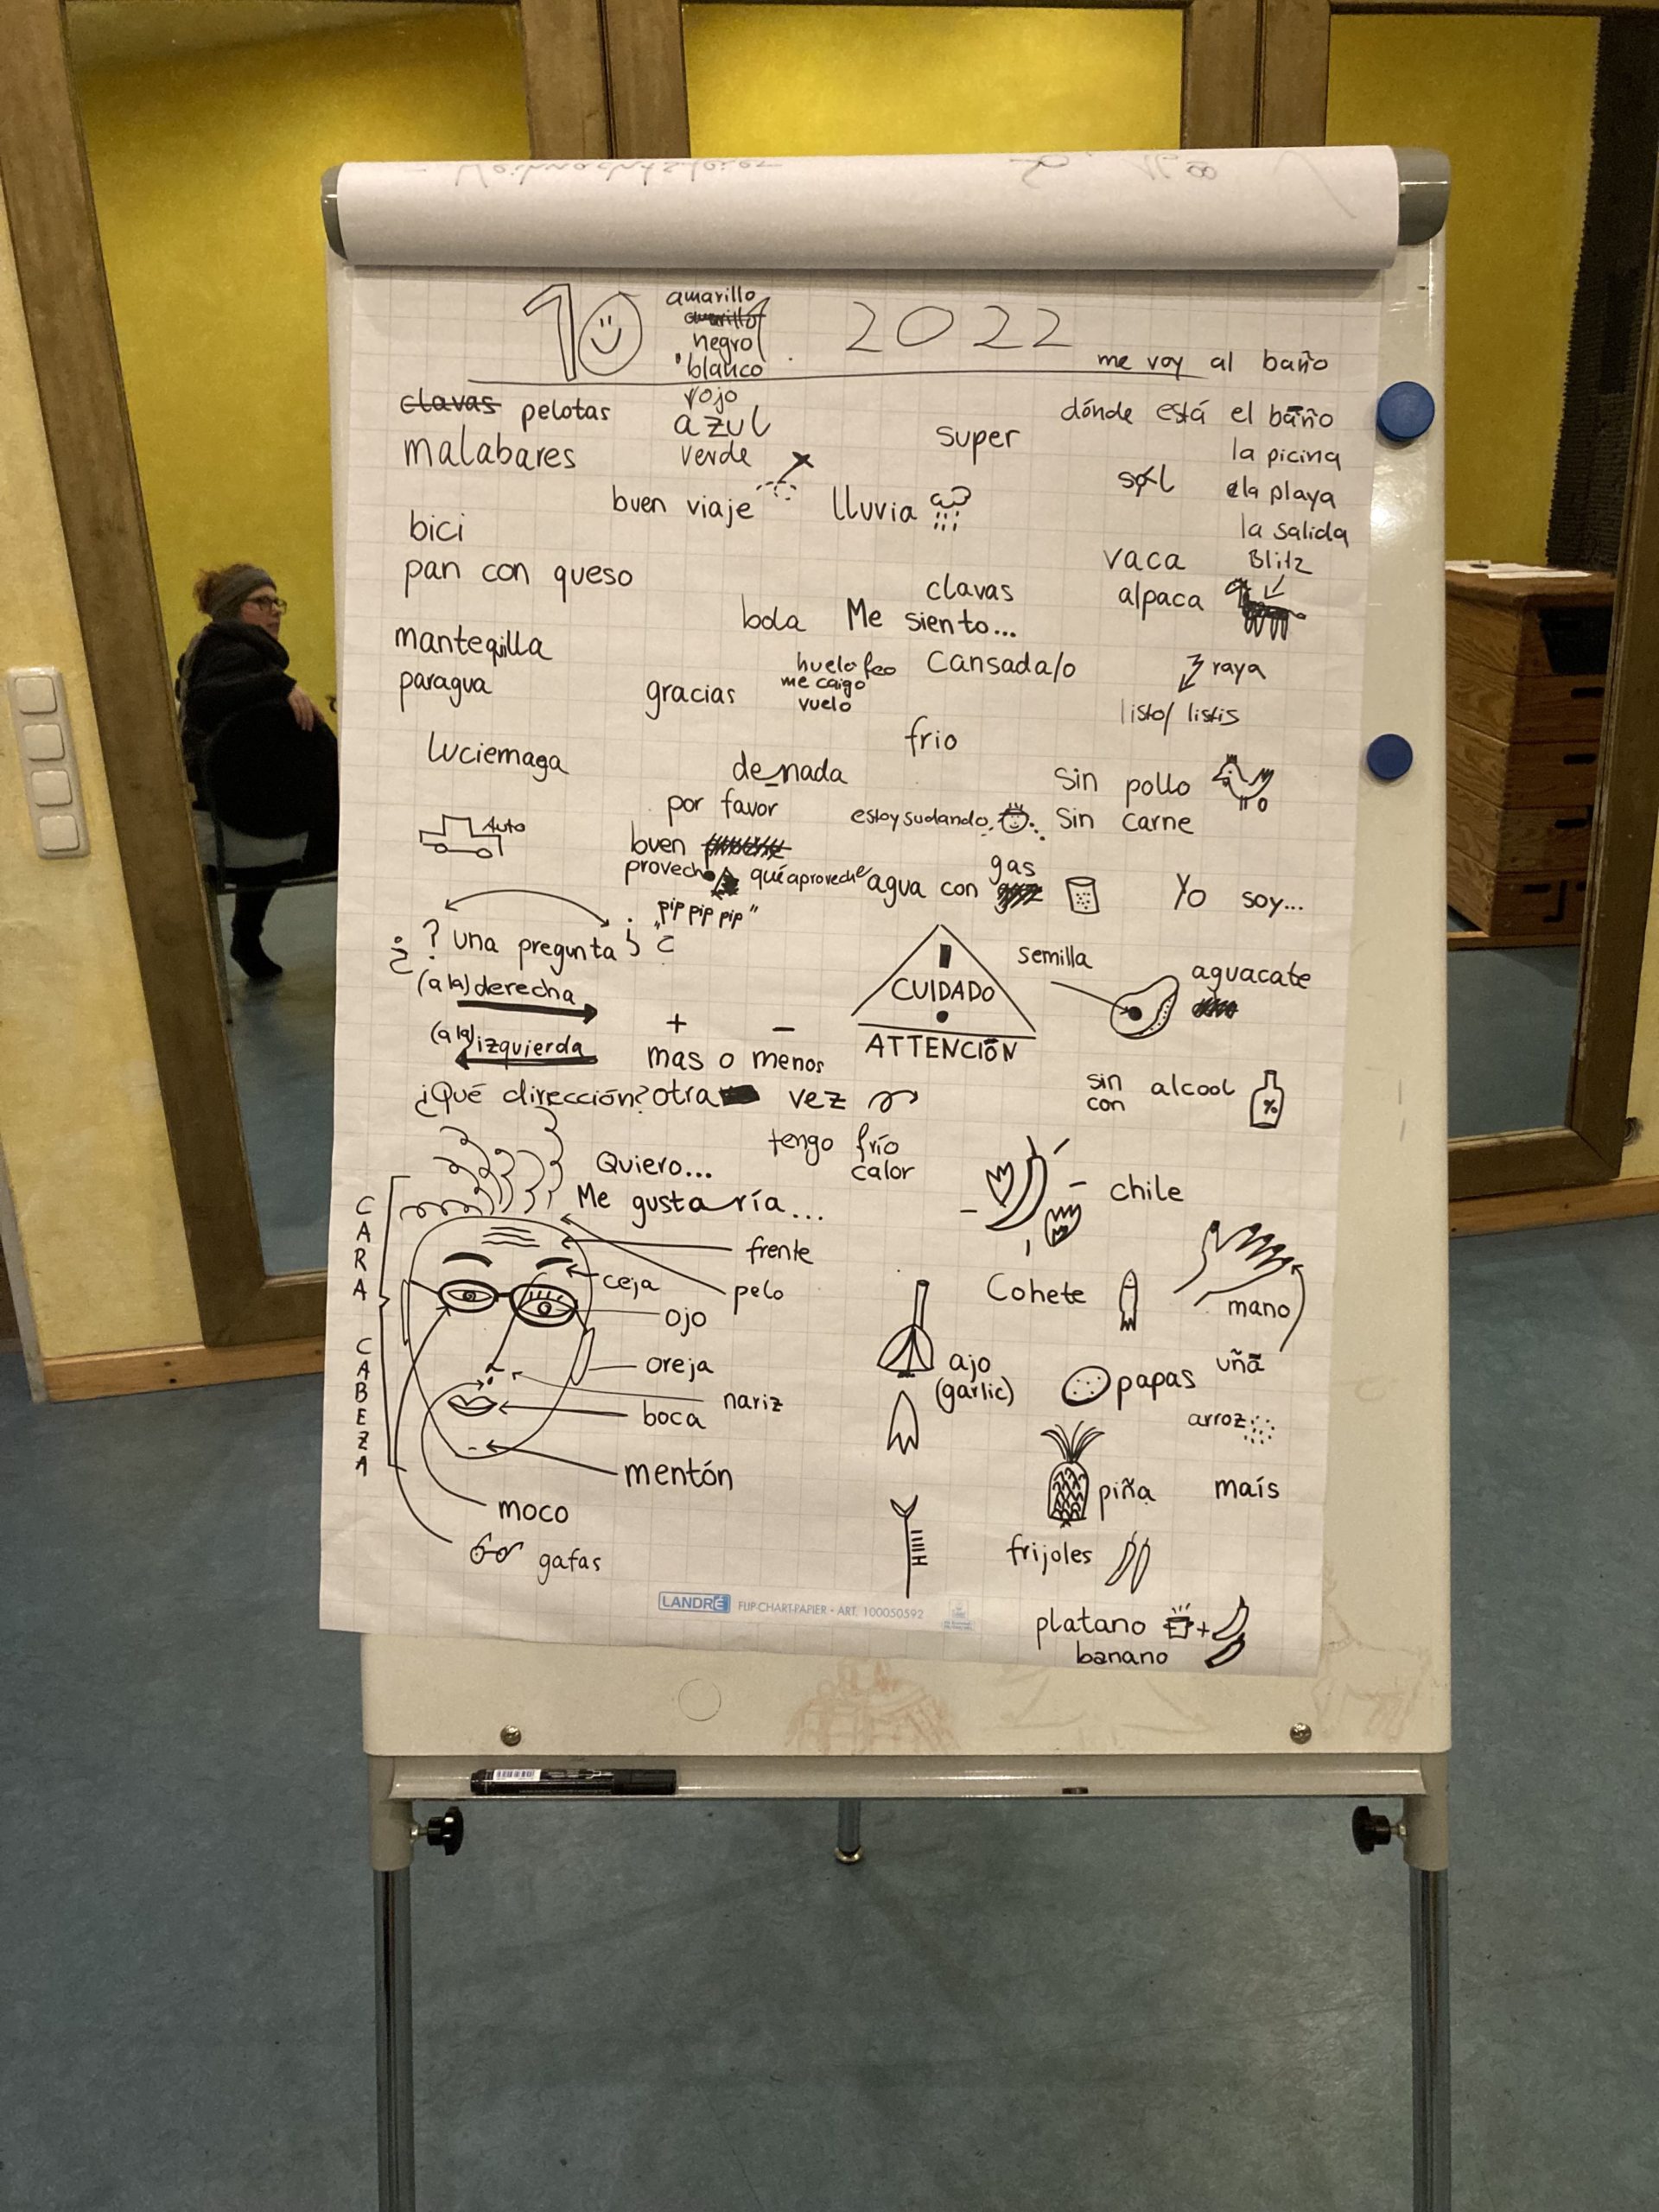 Weihnachtsfeier
10
amarillo
negro
blanco
rojo
azul
verde
2022
me voy al baño
clavas pelotas
malabares
super
dónde está el baño
la picina
la playa
la salida
sol
buen viaje
lluvia
bici
pan con queso
vaca
Blitz
clavas
alpaca
bola
Me siento...
mantequilla
paragua
gracias
huelo feo
me caigo
vuelo
Cansada/o
raya
listo/ listis
frio
luciernaga
de nada
por favor
estoy sudando
sin pollo
sin carne
Auto
buen
provecho
qué aproveche
agua con gas
"pip pip pip"
Yo soy...
¿ ? una pregunta ¿
(a la) derecha
(a la) izquierda
+ −
mas o menos
CUIDADO
ATTENCIÓN
semilla
aguacate
¿Qué dirección?
otra vez
sin
con
alcool
%
tengo frío
calor
Quiero...
Me gustaría...
chile
CARA CABEZA
frente
pelo
ceja
ojo
oreja
nariz
boca
mentón
moco
gafas
Cohete
mano
uña
ajo
(garlic)
papas
arroz
piña
maís
frijoles
platano
+
banano
LANDRÉ FLIP-CHART-PAPIER - ART. 100050592